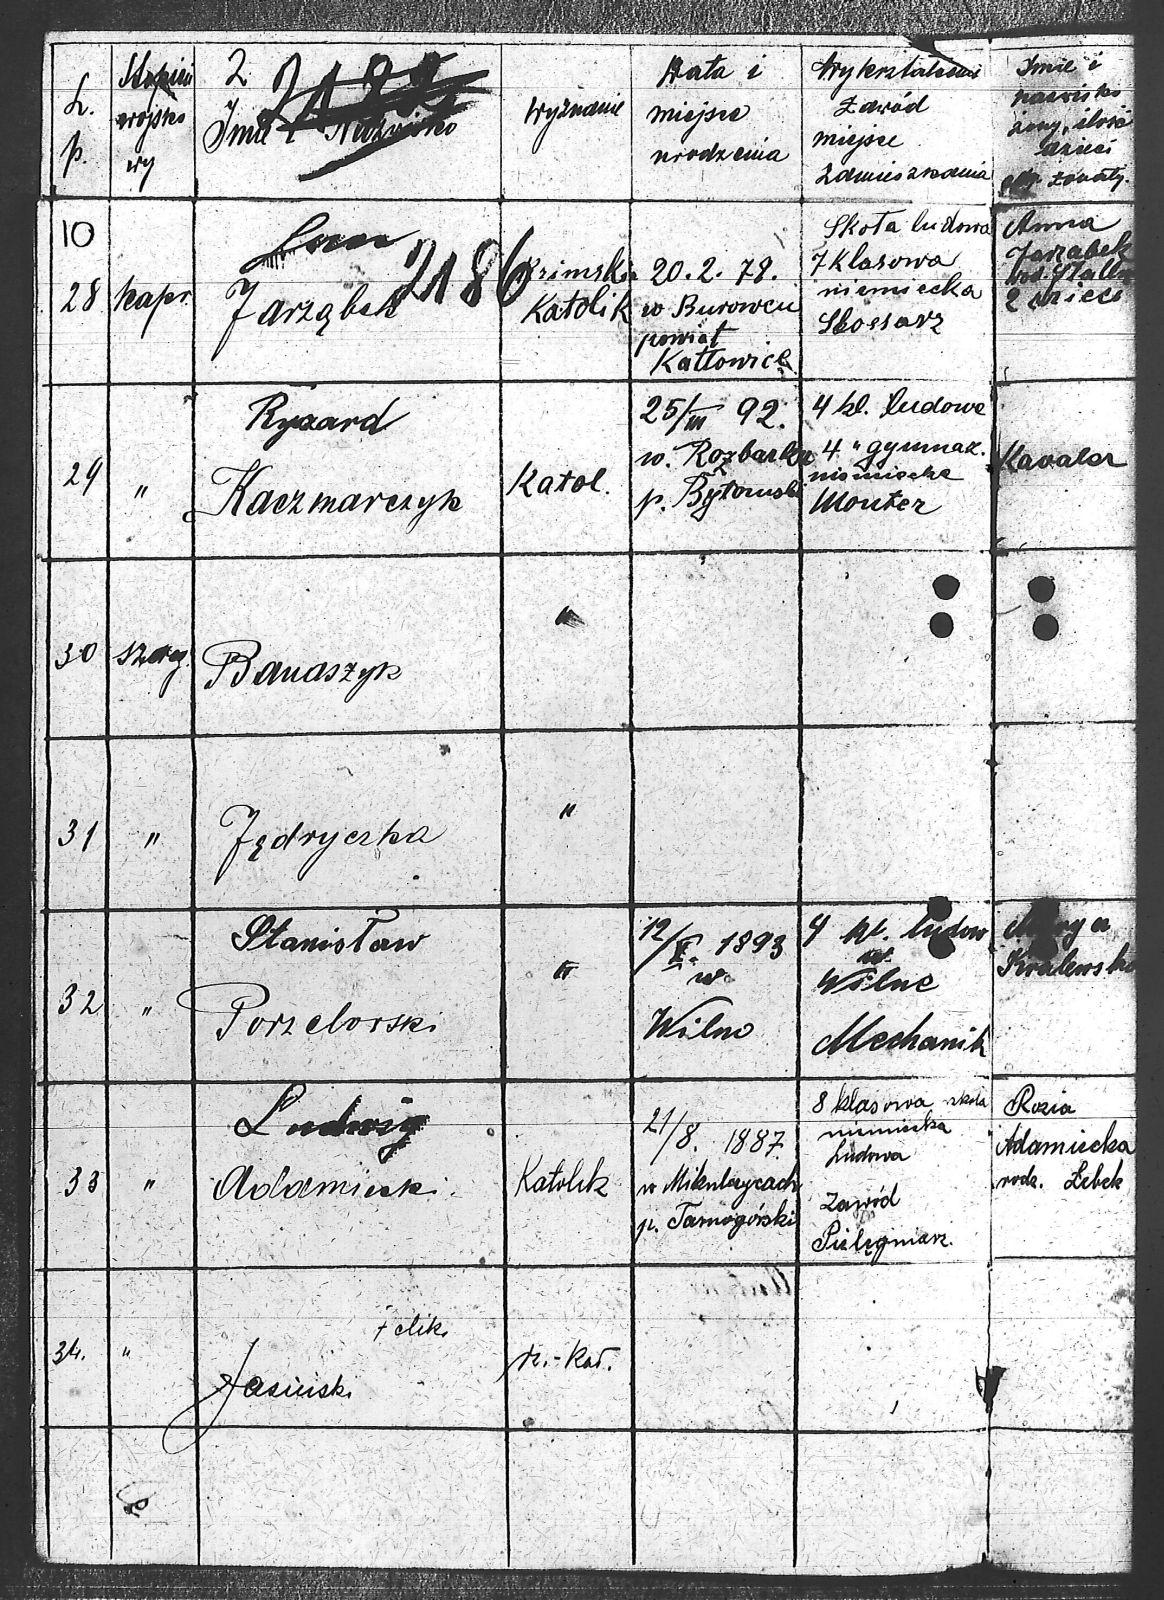 L.
p.
wojsko
wy
2
Imię i Nazwisko
Wyznanie
Data i
miejsce
urodzenia
Wykształcenie
Zawód
miejsce
Zamieszkania
Imię i
nazwisko
żony, ilość
dzieci
żonaty.
10
28
kapr.
Jarząbek
2186
Rzimski
Katolik
20. 2. 78.
w Burowcu
powiat
Kattowice
Skoła ludowa
7 klasowa
niemiecka
Slossarz
Anna
Jarząbek
2 dzieci
29
"
Ryszard
Kaczmarczyk
Katol.
25/III 92.
w. Rozbarku
p. Bytomski
4 kl. ludowe
4 " gymnaz.
niemieckie
Monter
Kavaler
30
szereg.
Banaszyk
"
31
"
Jędryczka
"
32
"
Stanisław
Porzelorski
"
12/ 1893
w
Wilno
4 kl. ludow
w.
Wilne
Mechanik
33
"
Ludwig
Adamiecki
Katolik
21/8. 1887.
w Mikulczycach
p. Tarnogórski
8 klasowa skola
niemiecka
Ludowa
Zawód
Pielęgniarz.
Rozia
Adamiecka
rodz. Lebek
34.
"
Feliks
Jasiński
rz.-kat.